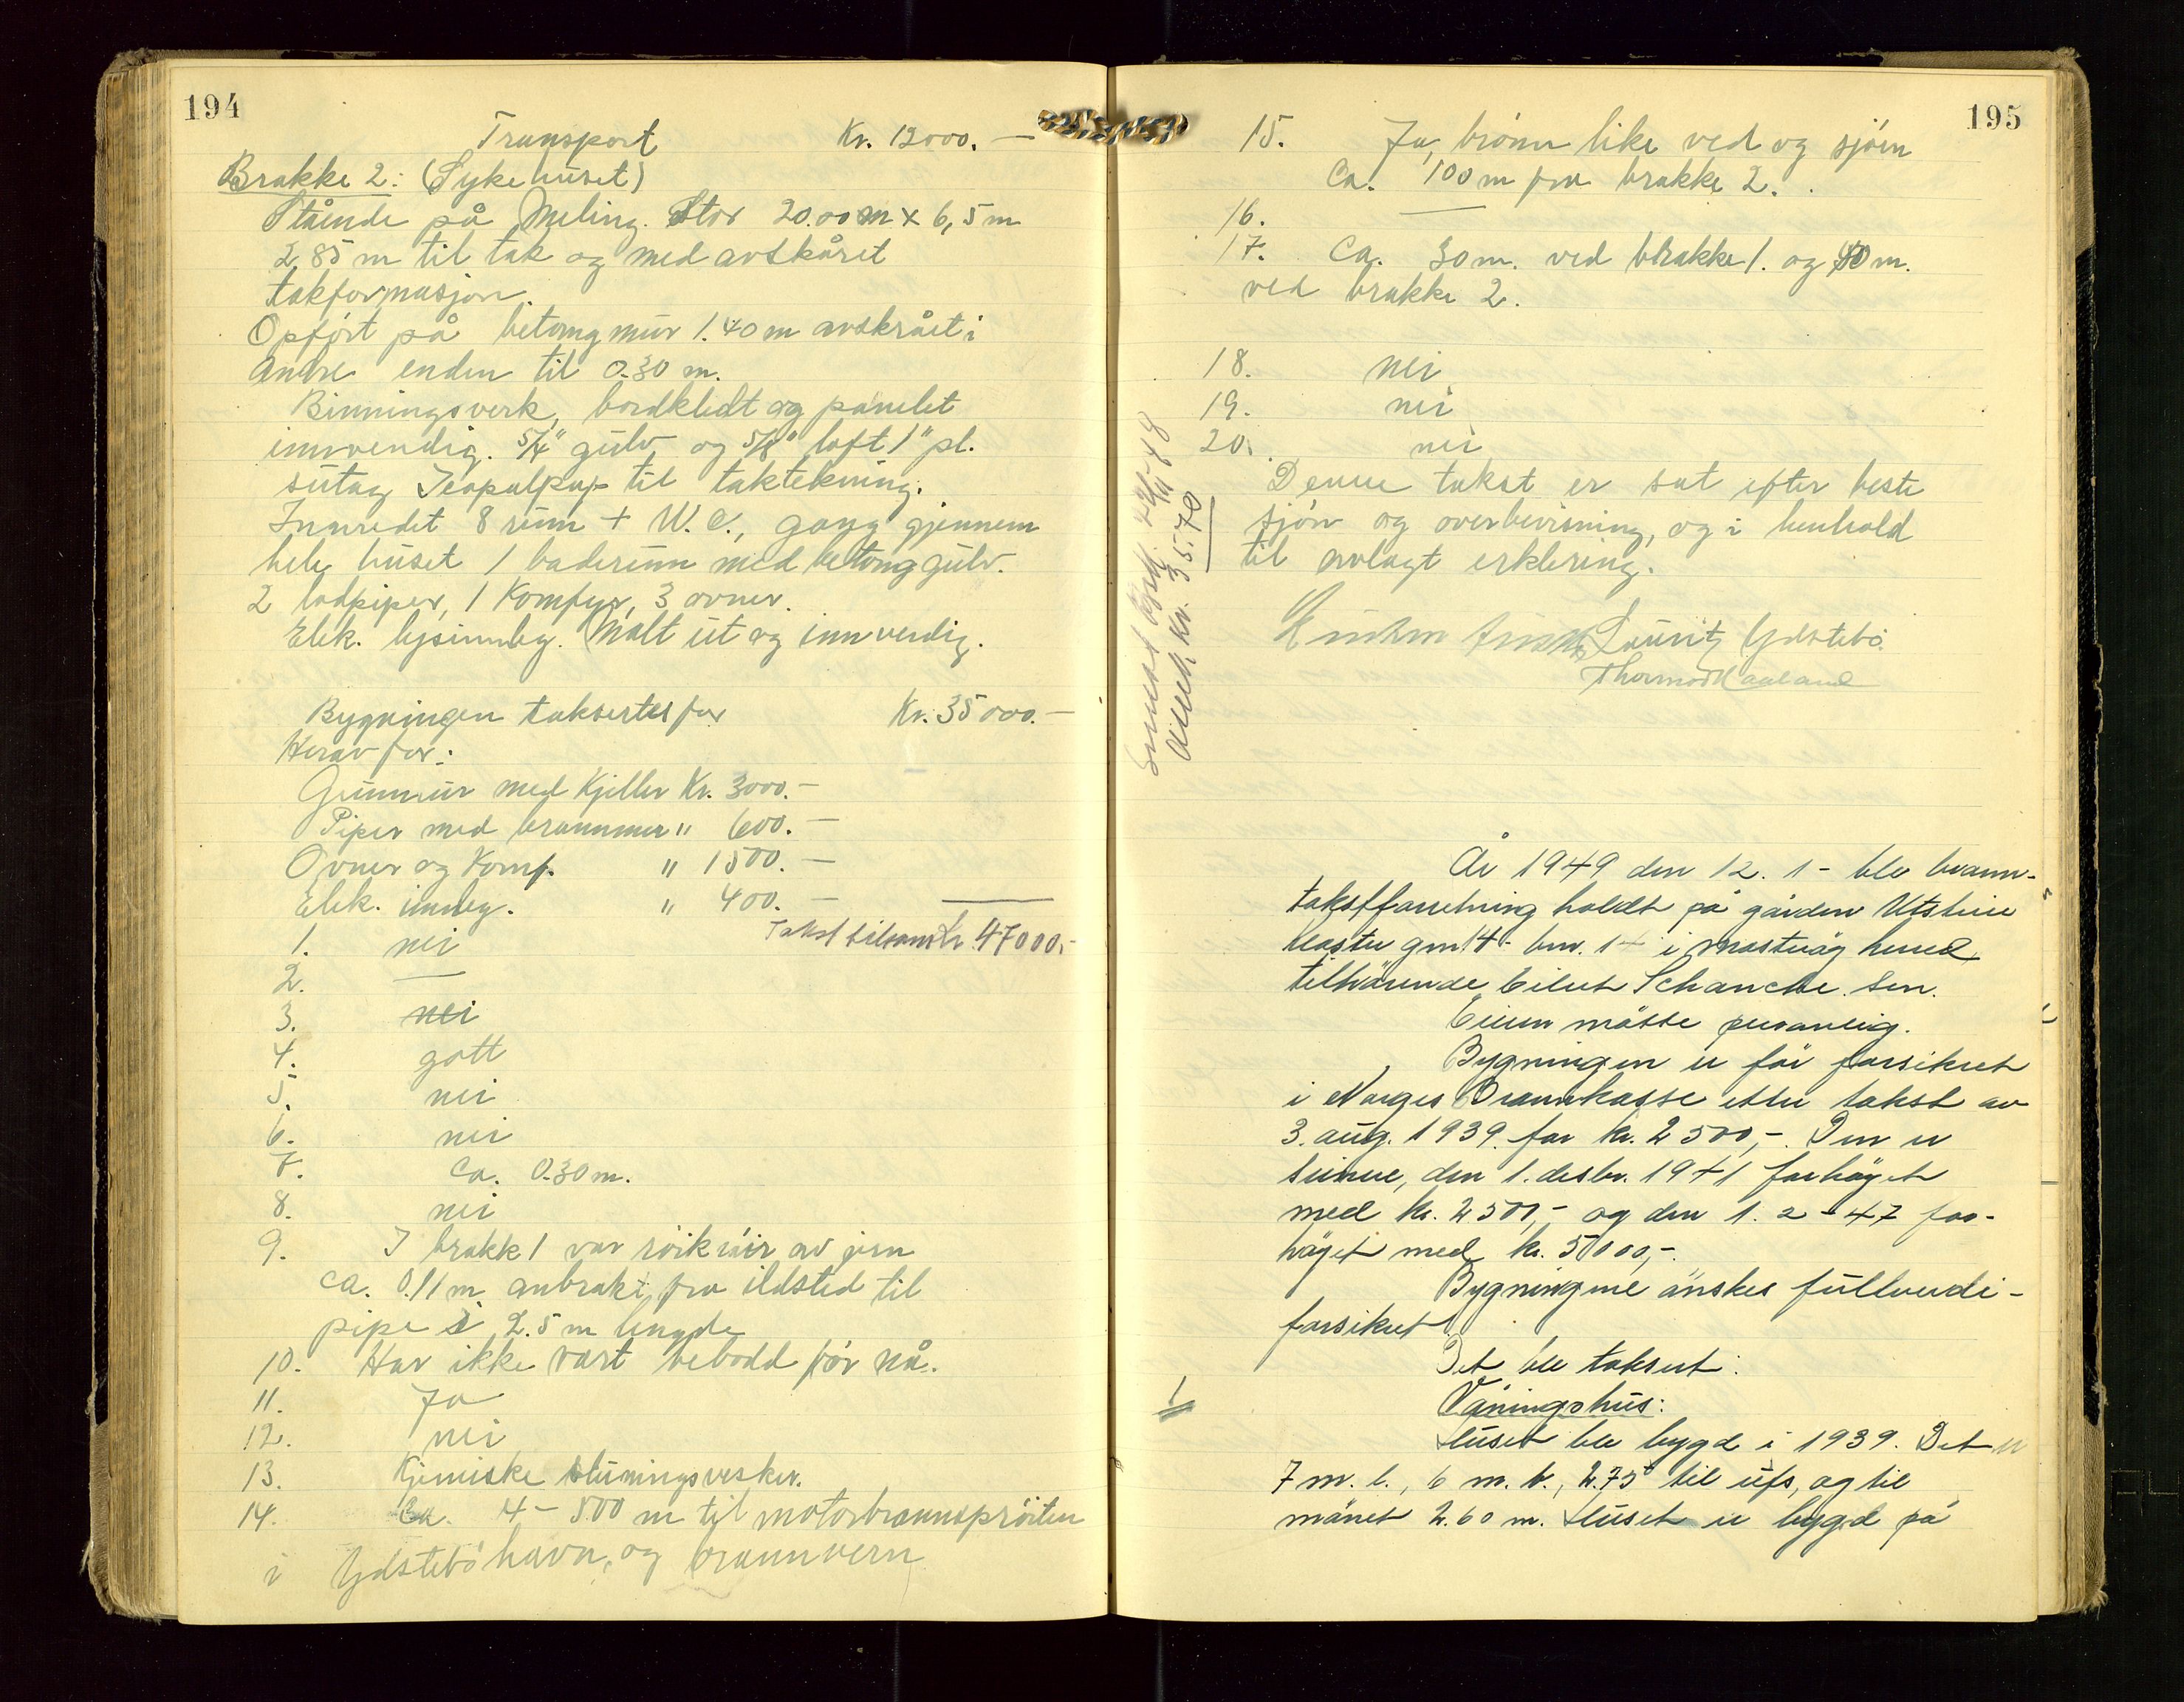 194
Transport Kr. 12000.—
Brakke 2: (Sykehuset)
Stående på Meling. Stor 20.00 m x 6,5 m
2,85 m til tak og med avskåret
takformasjon.
Opført på betongmur 1.40 m avskrået i
andre enden til 0.30 m.
Binningsverk, bordkledt og panelet
innvendig. 5/4" gulv og 5/8" loft 1" pl.
sutag til taktekning.
Innredet 8 rum + W.C., gang gjennem
hele huset 1 baderum med betonggulv.
2 lodpiper, 1 Komfyr, 3 ovner.
Elek. lysinnleg. Malt ut og innvendig.
Bygningen taksertes for Kr. 35000.—
Herav for:
Grunnmur med Kjeller Kr. 3000.—
Piper med brannmur " 600.—
Ovner og Komf. " 1500.—
Elek. innleg. " 400.—
1. nei Takst tilsam kr. 47000.-
2. —
3. nei
4. gott
5. nei
6. nei
7. Ca. 0.30 m.
8. nei
9. I brakk 1 var röikrör av jern
ca. 0.11 m anbrakt fra ildsted til
pipe i 2.5 m lengde
10. Har ikke vært bebodd før nå.
11. Ja
12. nei
13. Kjemiske slukningsvesker.
14. Ca. 4 - 500 m til motorbrannsprøiten
i Ydstebøhavn, og brannvern
195
15. Ja, brønn like ved og sjøen
Ca. 100 m fra brakke 2.
16. —
17. Ca. 30 m. ved brakke 1. og 40 m.
ved brakke 2.
18. nei
19. nei
20. nei
Denne takst er sat efter beste
skjøn og overbevisning, og i henhold
til avlagt erklering.
Lauritz Ydstebö.
Thormod Haaland
Kr. 35.70
År 1949 den 12. 1 - ble brann-
takstforretning holdt på gården Utstein
kloster gnr 14 - bnr. 1 - i Mosterøy herred
tilhørende Eilert Schanche. Sen.
Eieren møtte personlig.
Bygningen er før forsikret
i Norges Brannkasse etter takst av
3. aug. 1939 for kr. 2500,-. Den er
seinere, den 1. desbr. 1941 forhøyet
med kr. 2500,- og den 1. 2 - 47 for-
høyet med kr. 5000,-.
Bygningene ønskes fullverdi-
forsikret.
Det ble taksert:
1 Våningshus:
Huset ble bygd i 1939. Det er
7 m. l., 6 m. b., 2.75 til ufs, og til
mønet 2.60 m. Huset er bygd på